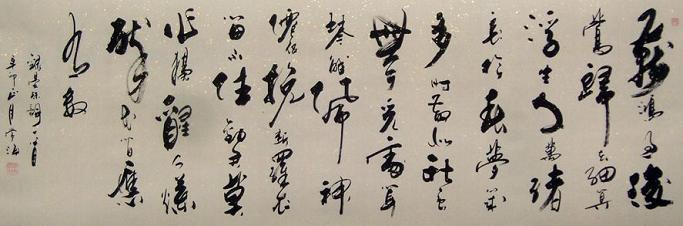 燕鴻過後
鶯歸去細算
浮生千萬緒
長於春夢幾
多時散似秋雲
無覓處聞
琴解佩神
僊侶挽斷羅衣
留不住勸君莫
作獨醒人爛
醉花間應
有數
錄晏殊詞一首
辛卯正月